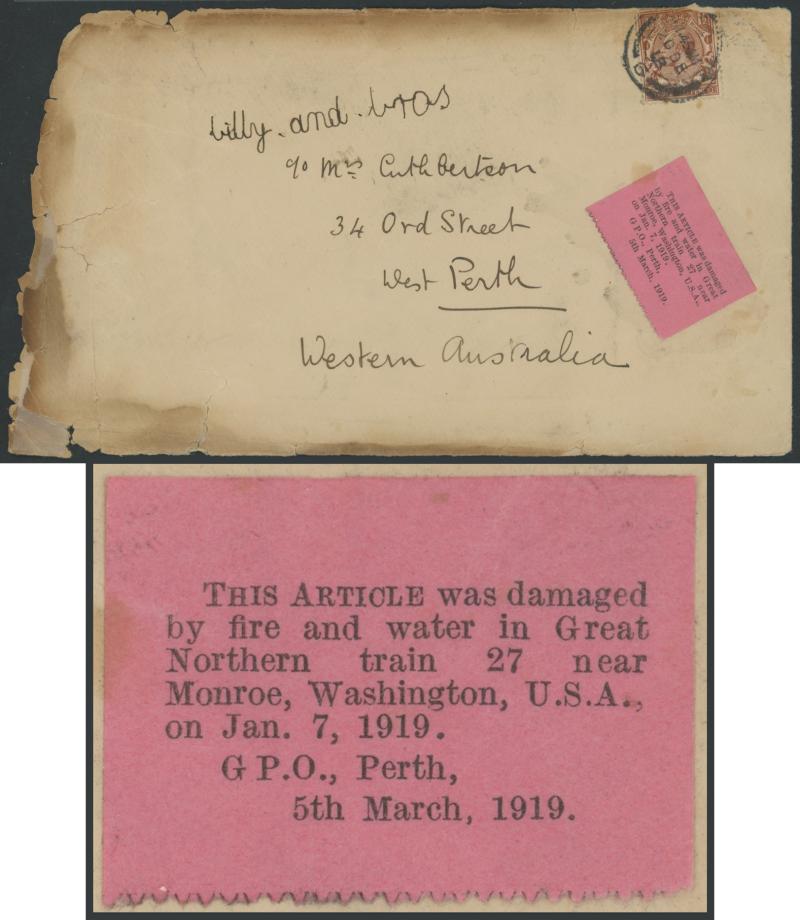 Billy. and. bros
c/o Mrs Cuthbertson
34 Ord Street
West Perth
Western Australia
THIS ARTICLE was damaged
by fire and water in Great
Northern train 27 near
Monroe, Washington, U.S.A.,
on Jan. 7, 1919.
G.P.O., Perth,
5th March, 1919.
THIS ARTICLE was damaged
by fire and water in Great
Northern train 27 near
Monroe, Washington, U.S.A.,
on Jan. 7, 1919.
G P.O., Perth,
5th March, 1919.